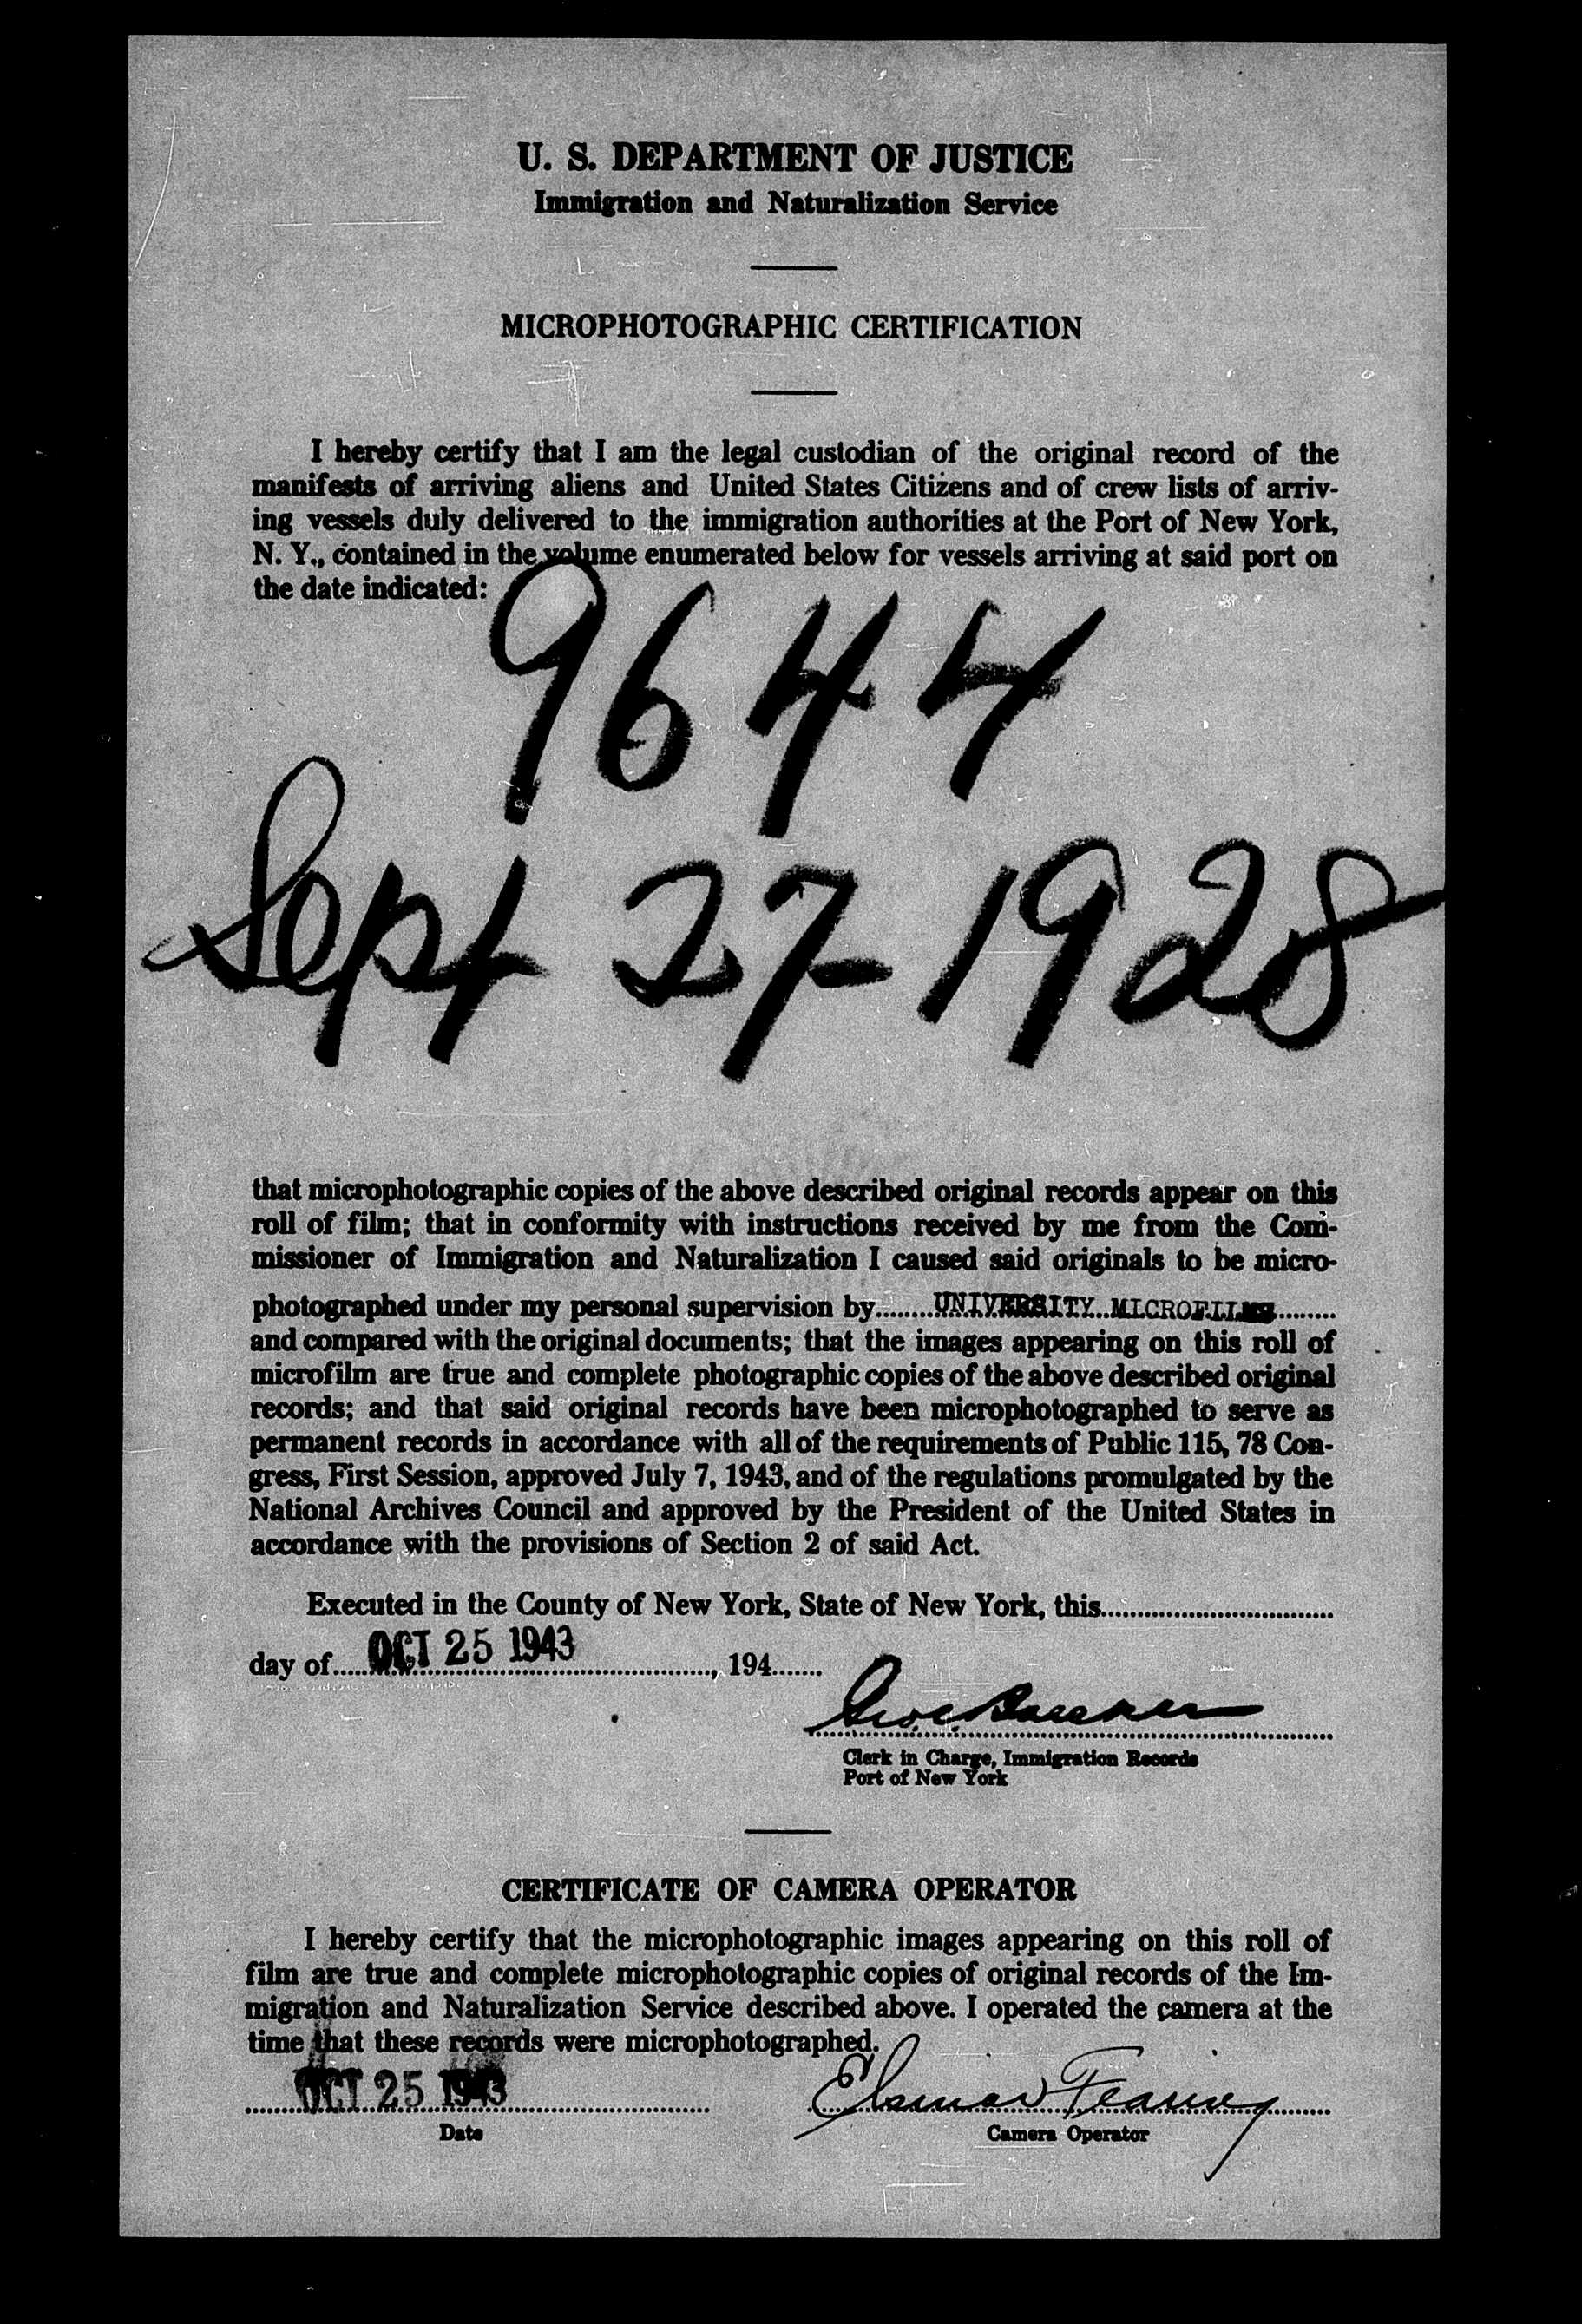 U. S. DEPARTMENT OF JUSTICE
Immigration and Naturalization Service
MICROPHOTOGRAPHIC CERTIFICATION
I hereby certify that I am the legal custodian of the original record of the
manifests of arriving aliens and United States Citizens and of crew lists of arriv-
ing vessels duly delivered to the immigration authorities at the Port of New York,
N. Y., contained in the volume enumerated below for vessels arriving at said port on
the date indicated:
9644
Sept 27-1928
that microphotographic copies of the above described original records appear on this
roll of film; that in conformity with instructions received by me from the Com-
missioner of Immigration and Naturalization I caused said originals to be micro-
photographed under my personal supervision by........UNIVERSITY MICROFILMS.........
and compared with the original documents; that the images appearing on this roll of
microfilm are true and complete photographic copies of the above described original
records; and that said original records have been microphotographed to serve as
permanent records in accordance with all of the requirements of Public 115, 78 Con-
gress, First Session, approved July 7, 1943, and of the regulations promulgated by the
National Archives Council and approved by the President of the United States in
accordance with the provisions of Section 2 of said Act.
Executed in the County of New York, State of New York, this................................
day of.....OCT 25 1943................, 194.......
Clerk in Charge, Immigration Records
Port of New York
CERTIFICATE OF CAMERA OPERATOR
I hereby certify that the microphotographic images appearing on this roll of
film are true and complete microphotographic copies of original records of the Im-
migration and Naturalization Service described above. I operated the camera at the
time that these records were microphotographed.
OCT 25 1943
Date
Camera Operator